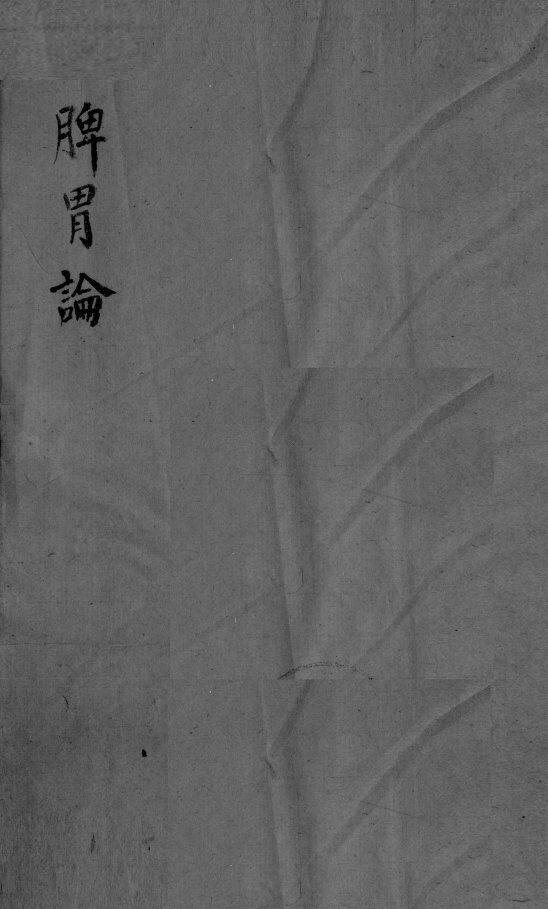 脾胃論